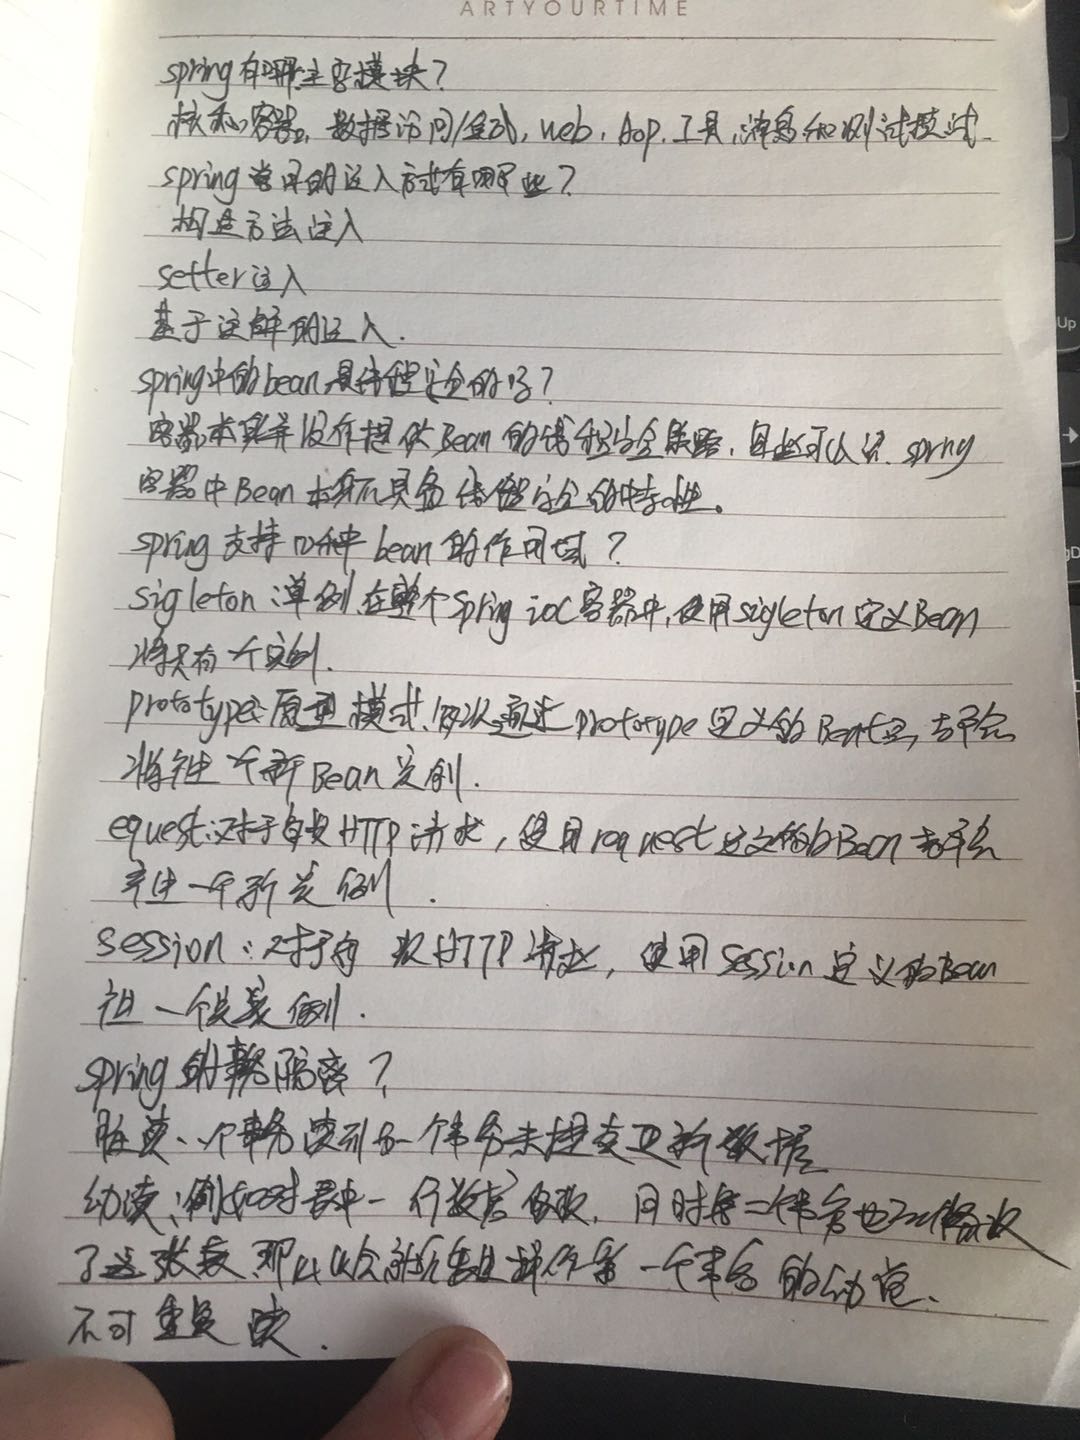 ARTYOURTIME
spring有哪主要模块?
核心容器,数据访问/集成,web,Aop,工具,消息和测试模式
spring常用的注入方式有哪些?
构造方法注入
setter注入
基于注解的注入.
spring中的bean是线程安全的吗?
容器本身并没有提供Bean的线程安全策略,因此可以说 spring
容器中Bean本身不具备线程安全的特性。
spring支持几种bean的作用域?
sigleton:单例,在整个spring ioc容器中,使用sigleton定义Bean
将只有一个实例.
prototype:原型模式,每次通过prototype定义的Bean 都会
将 一个新Bean实例.
equest:对于每次HTTP请求,使用request定义的Bean都会
产生一个新实例.
session:对于每次HTTP请求,使用Session定义的Bean
一个 实例.
spring的事务隔离?
脏读:一个事务读到另一个事务未提交更新数据
幻读:例如对表中一行数据修改,同时第二个事务也 修改
了这张表,那 以后就 发生操作第一个事务的
不可重复读.